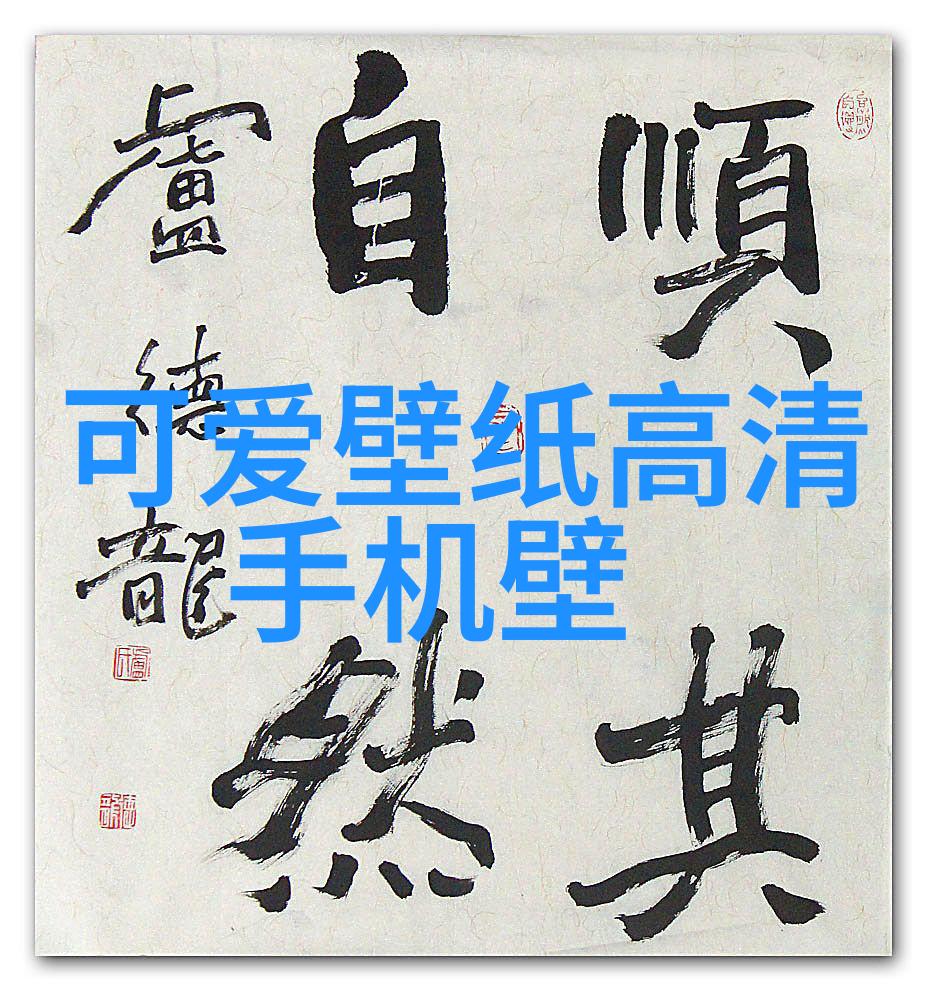 順其
自然
盧德龍
可爱壁纸高清
手机壁